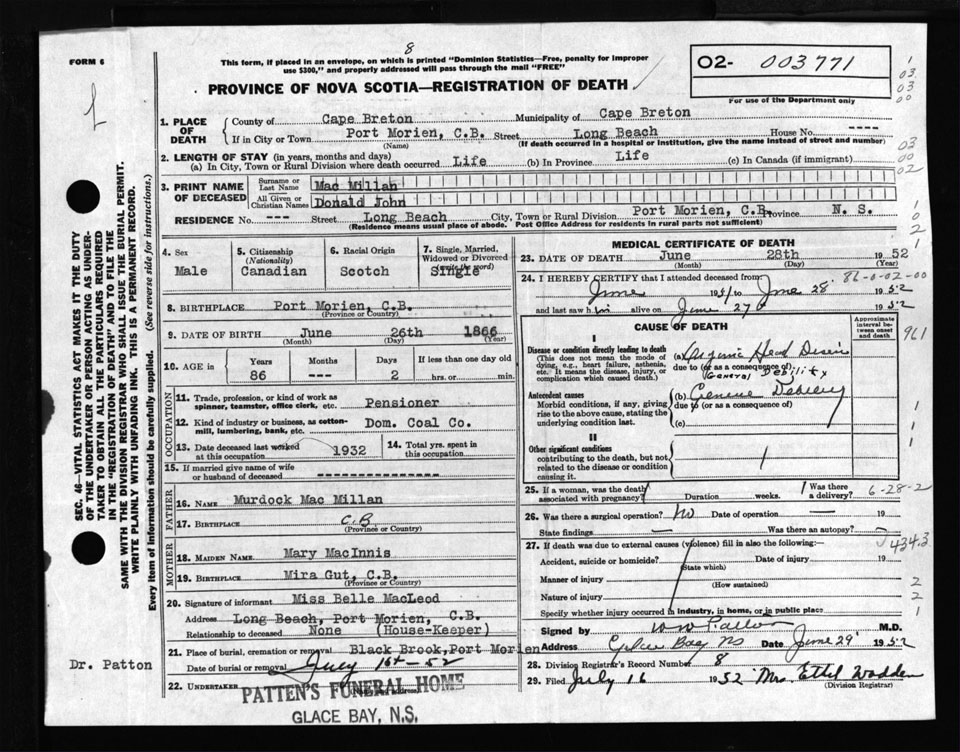 8
FORM 6
This form, if placed in an envelope, on which is printed "Dominion Statistics—Free, penalty for improper
use $300," and properly addressed will pass through the mail "FREE"
PROVINCE OF NOVA SCOTIA—REGISTRATION OF DEATH
02- 003771
For use of the Department only
1. PLACE OF DEATH
County of Cape Breton Municipality of Cape Breton
If in City or Town Port Morien, C.B. Street Long Beach House No. ----
(Name) (If death occurred in a hospital or institution, give the name instead of street and number)
2. LENGTH OF STAY (in years, months and days)
(a) In City, Town or Rural Division where death occurred Life (b) In Province Life (c) In Canada (if immigrant)
3. PRINT NAME OF DECEASED
Surname or Last Name Mac Millan
All Given or Christian Names Donald John
RESIDENCE No. --- Street Long Beach City, Town or Rural Division Port Morien, C.B. Province N. S.
(Residence means usual place of abode. Post Office Address for residents in rural parts not sufficient)
4. Sex Male
5. Citizenship (Nationality) Canadian
6. Racial Origin Scotch
7. Single, Married, Widowed or Divorced Single
8. BIRTHPLACE Port Morien, C.B.
(Province or Country)
9. DATE OF BIRTH June 26th 1866
(Month) (Day) (Year)
10. AGE in Years 86 Months --- Days 2 If less than one day old hrs. or min.
OCCUPATION
11. Trade, profession, or kind of work as spinner, teamster, office clerk, etc. Pensioner
12. Kind of industry or business, as cotton-mill, lumbering, bank, etc. Dom. Coal Co.
13. Date deceased last worked at this occupation 1932
14. Total yrs. spent in this occupation.
15. If married give name of wife or husband of deceased
FATHER
16. NAME Murdock Mac Millan
17. BIRTHPLACE C.B
(Province or Country)
MOTHER
18. MAIDEN NAME Mary MacInnis
19. BIRTHPLACE Mira Gut, C.B.
(Province or Country)
20. Signature of informant Miss Belle MacLeod
Address Long Beach, Port Morien, C.B.
Relationship to deceased None (House-Keeper)
21. Place of burial, cremation or removal Black Brook, Port Morien
Date of burial or removal July 1st - 52
22. UNDERTAKER
PATTEN'S FUNERAL HOME
GLACE BAY, N.S.
MEDICAL CERTIFICATE OF DEATH
23. DATE OF DEATH June 28th 1952
(Month) (Day) (Year)
24. I HEREBY CERTIFY that I attended deceased from 86-0-02-00
June to June 28 1952
and last saw h alive on June 27 1952
CAUSE OF DEATH
Approximate interval between onset and death
961
I
Disease or condition directly leading to death
(This does not mean the mode of dying, e.g., heart failure, asthenia, etc. It means the disease, injury, or complication which caused death.)
(a)
due to (or as a consequence of)
(GENERAL DEBILITY
Antecedent causes
Morbid conditions, if any, giving rise to the above cause, stating the underlying condition last.
(b) Debility
due to (or as a consequence of)
(c)
II
Other significant conditions
contributing to the death, but not related to the disease or condition causing it.
25. If a woman, was the death associated with pregnancy? Duration weeks. Was there a delivery? 6-28-2
26. Was there a surgical operation? No Date of operation —
State findings — Was there an autopsy? —
27. If death was due to external causes (violence) fill in also the following:—
434.3
Accident, suicide or homicide? Date of injury 19
(State which)
Manner of injury
(How sustained)
Nature of injury
Specify whether injury occurred in industry, in home, or in public place
Signed by M.D.
Address Glace Bay NS Date June 29 1952
28. Division Registrar's Record Number 8
29. Filed July 16 1952 Mrs. Ethel Wadden
(Division Registrar)
SEC. 46—VITAL STATISTICS ACT MAKES IT THE DUTY
OF THE UNDERTAKER OR PERSON ACTING AS UNDER-
TAKER TO OBTAIN ALL THE PARTICULARS REQUIRED
IN THE "REGISTRATION OF DEATH" AND TO FILE THE
SAME WITH THE DIVISION REGISTRAR WHO SHALL ISSUE THE BURIAL PERMIT.
WRITE PLAINLY WITH UNFADING INK. THIS IS A PERMANENT RECORD.
Every item of Information should be carefully supplied. (See reverse side for instructions.)
Dr. Patton